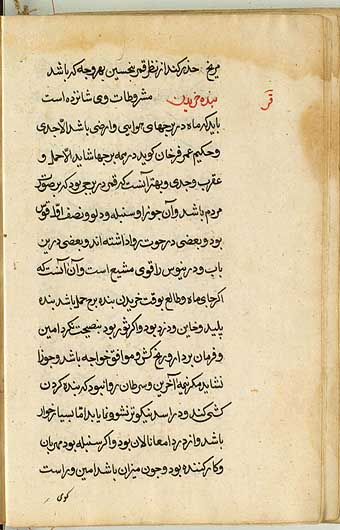 مریخ حذر کند از نظر قمر بنحسین بهر وجه که باشد
بنده خریدن مشروطات وی شانزده است
قمر
باید که ماه در برجهای هوایی و ارضی باشد الا جدی
و حکیم عمر فرخان کوید در همه برجها شاید الا حمل و
عقرب و جدی و بهتر آنست که قمر در برجی بود که بر صورت
مردم باشد و آن جوزا و سنبله و دلو و نصف اول قوس
بود و بعضی در حوت روا داشته اند و بعضی درین
باب ودرنیوس را قوی مشبع است و آن آنست که
اکر جای ماه و طالع بوقت خریدن بنده برج حمل باشد بنده
پلید و خاین و دزد بود و اکر ثور بود بنصیحت نکرد امین
و فرمان بردار و رنج کش و موافق خواجه باشد و جوزا
نشاید مکر نیمه آخرین و سرطان روا نبود که بنده کردن
کشی کند و در اسد نیکوتر نشو و نما یابد اما بسیار خوار
باشد و از درد امعا نالان بود و اکر سنبله بود مهربان
و کارکننده بود و چون میزان باشد امین و راست
کوی